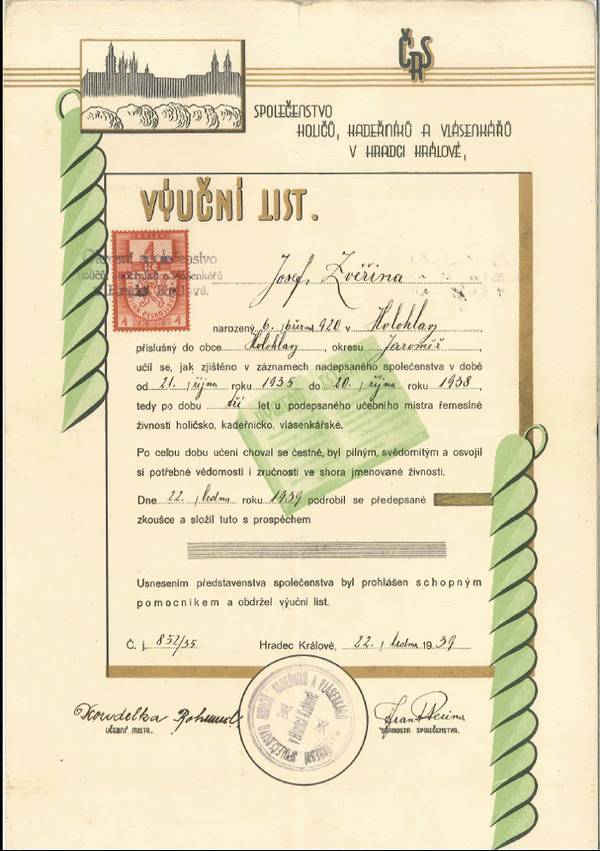 ČRS
SPOLEČENSTVO
HOLIČŮ, KADEŘNÍKŮ A VLÁSENKÁŘŮ
V HRADCI KRÁLOVÉ,
VÝUČNÍ LIST.
Josef Zvěřina
narozený 6. března 920 v Holohlavy
příslušný do obce Holohlavy, okresu Jaroměř,
učil se, jak zjištěno v záznamech nadepsaného společenstva v době
od 21. října roku 1935 do 20. října roku 1938,
tedy po dobu tří let u podepsaného učebního mistra řemeslné
živnosti holičsko, kadeřnicko, vlásenkářské.
Po celou dobu učení choval se čestně, byl pilným, svědomitým a osvojil
si potřebné vědomosti i zručnosti ve shora jmenované živnosti.
Dne 22. ledna roku 1939 podrobil se předepsané
zkoušce a složil tuto s prospěchem
Usnesením představenstva společenstva byl prohlášen schopným
pomocníkem a obdržel výuční list.
Č. j. 852/35 Hradec Králové, 22. ledna 1939
Kowdelka Bohumil
UČEBNÍ MISTR.
STAROSTA SPOLEČENSTVA.